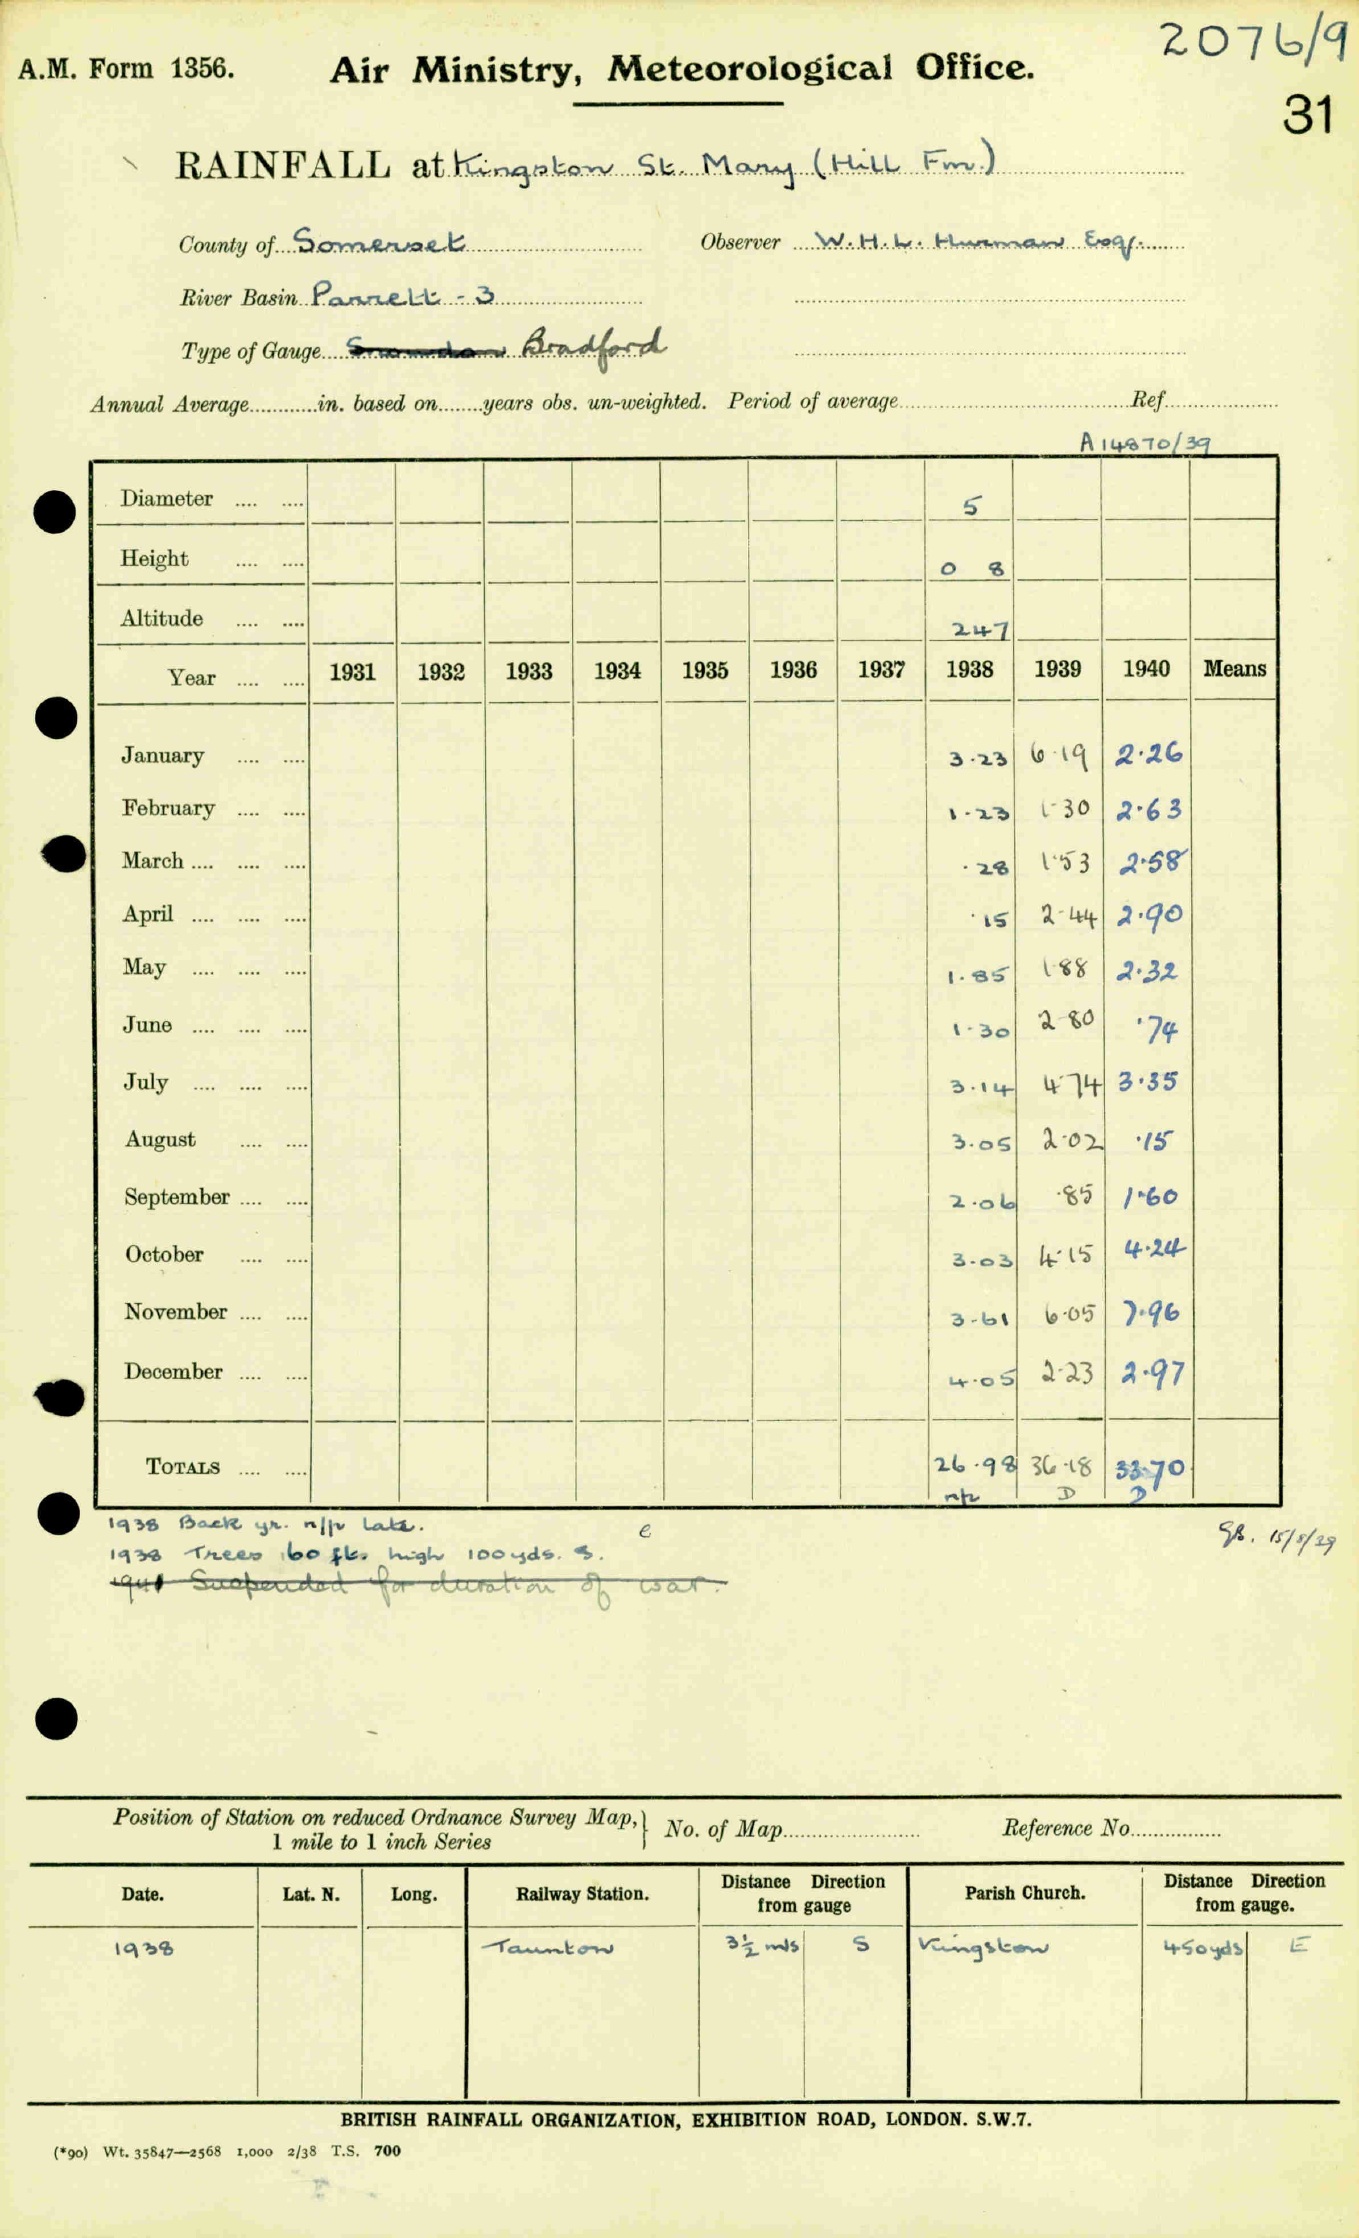 2076/9
A.M. Form 1356. Air Ministry, Meteorological Office.
31
RAINFALL at Kingston St. Mary (Hill Fm.)
County of Somerset Observer W.H.L. Hurman Esq.
River Basin Parrett - 3
Type of Gauge Snowdon Bradford
Annual Average............in. based on........years obs. un-weighted. Period of average............ Ref............
A14870/39
Diameter .... .... 5
Height .... .... 0 8
Altitude .... .... 247
Year .... .... 1931 1932 1933 1934 1935 1936 1937 1938 1939 1940 Means
January .... .... 3.23 6.19 2.26
February .... .... 1.23 1.30 2.63
March .... .... .... .28 1.53 2.58
April .... .... .... .15 2.44 2.90
May .... .... .... 1.85 1.88 2.32
June .... .... .... 1.30 2.80 .74
July .... .... .... 3.14 4.74 3.35
August .... .... 3.05 2.02 .15
September .... .... 2.06 .85 1.60
October .... .... 3.03 4.15 4.24
November .... .... 3.61 6.05 7.96
December .... .... 4.05 2.23 2.97
TOTALS .... .... 26.98 36.18 33.70
n/r D D
1938 Back yr. n/r late. e
1938 Trees 60 ft. high 100yds. S. 15/8/39
1941 Suspended for duration of war.
Position of Station on reduced Ordnance Survey Map, } No. of Map............ Reference No............
1 mile to 1 inch Series
Date. Lat. N. Long. Railway Station. Distance from gauge Direction Parish Church. Distance from gauge. Direction
1938 Taunton 3½ mls S Kingston 450yds E
BRITISH RAINFALL ORGANIZATION, EXHIBITION ROAD, LONDON. S.W.7.
(*90) Wt. 35847—2568 1,000 2/38 T.S. 700